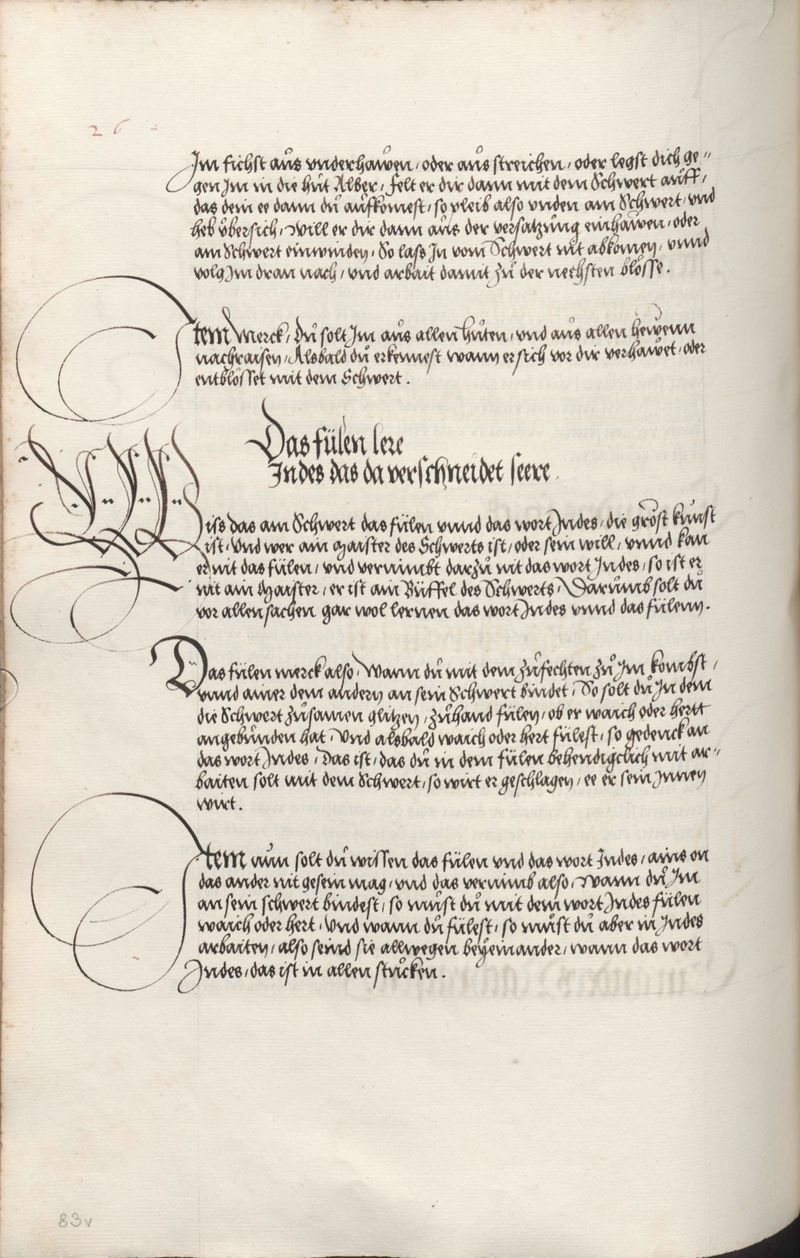 26
Im fichst aůs vnderhawen / oder aůs streichen / oder legst dich ge„
gen Im in die hůt Alber / Felt er dir dann mit dem Schwert aůff /
das dein ee dann dů aůfkomest / so pleib also vnden am Schwert / vnd
heb ŏbersich / Will er dir dann aůs der versatzůng einhawen / oder
am Schwert einwinden / So lass In vom Schwert nit abkomen / vnnd
volg Im dran nach / vnd arbait damit zů der nechsten blosse .
Item Merck / Dů solt Im aůs allen hůten / vnd aůs allen hewenn
nachraisen / Alsbald dů erkennest wann er sich vor dir verhawet / oder
entblösset mit dem Schwert .
Das fülen lere
Indes das da verschneidet seere .
Wiss das am Schwert das fülen vnnd das wort Indes / die gröst kůnst
ist / Vnd wer ain Maister des Schwerts ist / oder sein will / vnnd kan
er nit das fülen / vnd vernimbt darzů nit das wort Indes / so ist er
nit ain Maister / er ist ain Büffel des Schwerts / Darůmb solt dů
vor allen sachen gar wol lernen das wort Indes vnnd das fülenn .
Das fülen merck also / Wann dů mit dem zůfechten zů Im kombst /
vnnd ainer dem andern an sein Schwert bindet / So solt dů In dem
die Schwert zůsamen glitzen / zůhand fülen / ob er waich oder hertt
angebůnden hat / Vnd alsbald waich oder hert fülest / so gedenck an
das wort Indes / Das ist / das dů in dem fülen behendigclich mit ar„
baiten solt mit dem Schwert / so wirt er geschlagen / ee er sein Innen
wirt .
Item nůn solt dů wissen das fülen vnd das wort Indes / ains on
das ander nit gesein mag / vnd das vernimb also / Wann dů Im
an sein schwert bindest / so můst dů mit dem wort Indes fülen
waich oder hert / Vnd wann dů fülest / so můst dů aber in Indes
arbaiten / also seind sie allwegen beyeinander / wann das wort
Indes / das ist in allen stůcken .
83v